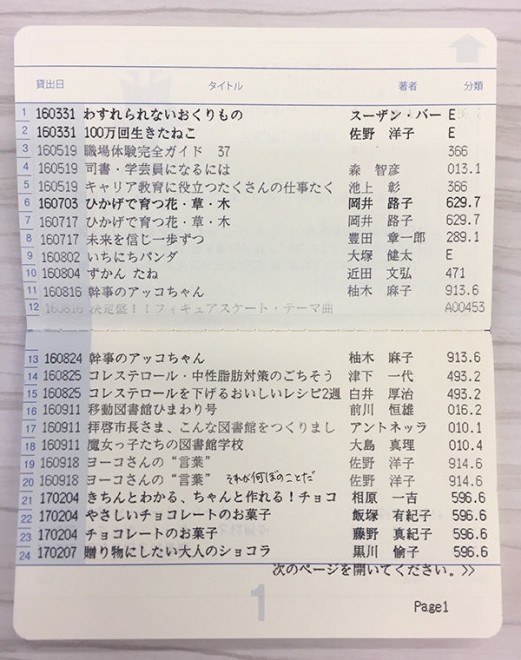 貸出日 タイトル 著者 分類
1 160331 わすれられないおくりもの スーザン・バー E
2 160331 100万回生きたねこ 佐野 洋子 E
3 160519 職場体験完全ガイド 37 366
4 160519 司書・学芸員になるには 森 智彦 013.1
5 160519 キャリア教育に役立つたくさんの仕事たく 池上 彰 366
6 160703 ひかげで育つ花・草・木 岡井 路子 629.7
7 160717 ひかげで育つ花・草・木 岡井 路子 629.7
8 160717 未来を信じ一歩ずつ 豊田 章一郎 289.1
9 160802 いちにちパンダ 大塚 健太 E
10 160804 ずかん たね 近田 文弘 471
11 160816 幹事のアッコちゃん 柚木 麻子 913.6
12 160816 決定盤!!フィギュアスケート・テーマ曲 A00453
13 160824 幹事のアッコちゃん 柚木 麻子 913.6
14 160825 コレステロール・中性脂肪対策のごちそう 津下 一代 493.2
15 160825 コレステロールを下げるおいしいレシピ2週 白井 厚治 493.2
16 160911 移動図書館ひまわり号 前川 恒雄 016.2
17 160911 拝啓市長さま、こんな図書館をつくりまし アントネッラ 010.1
18 160911 魔女っ子たちの図書館学校 大島 真理 010.4
19 160918 ヨーコさんの“言葉” 佐野 洋子 914.6
20 160918 ヨーコさんの“言葉” それが何ぼのことだ 佐野 洋子 914.6
21 170204 きちんとわかる、ちゃんと作れる!チョコ 相原 一吉 596.6
22 170204 やさしいチョコレートのお菓子 飯塚 有紀子 596.6
23 170204 チョコレートのお菓子 藤野 真紀子 596.6
24 170207 贈り物にしたい大人のショコラ 黒川 愉子 596.6
次のページを開いてください。>>
1
Page1